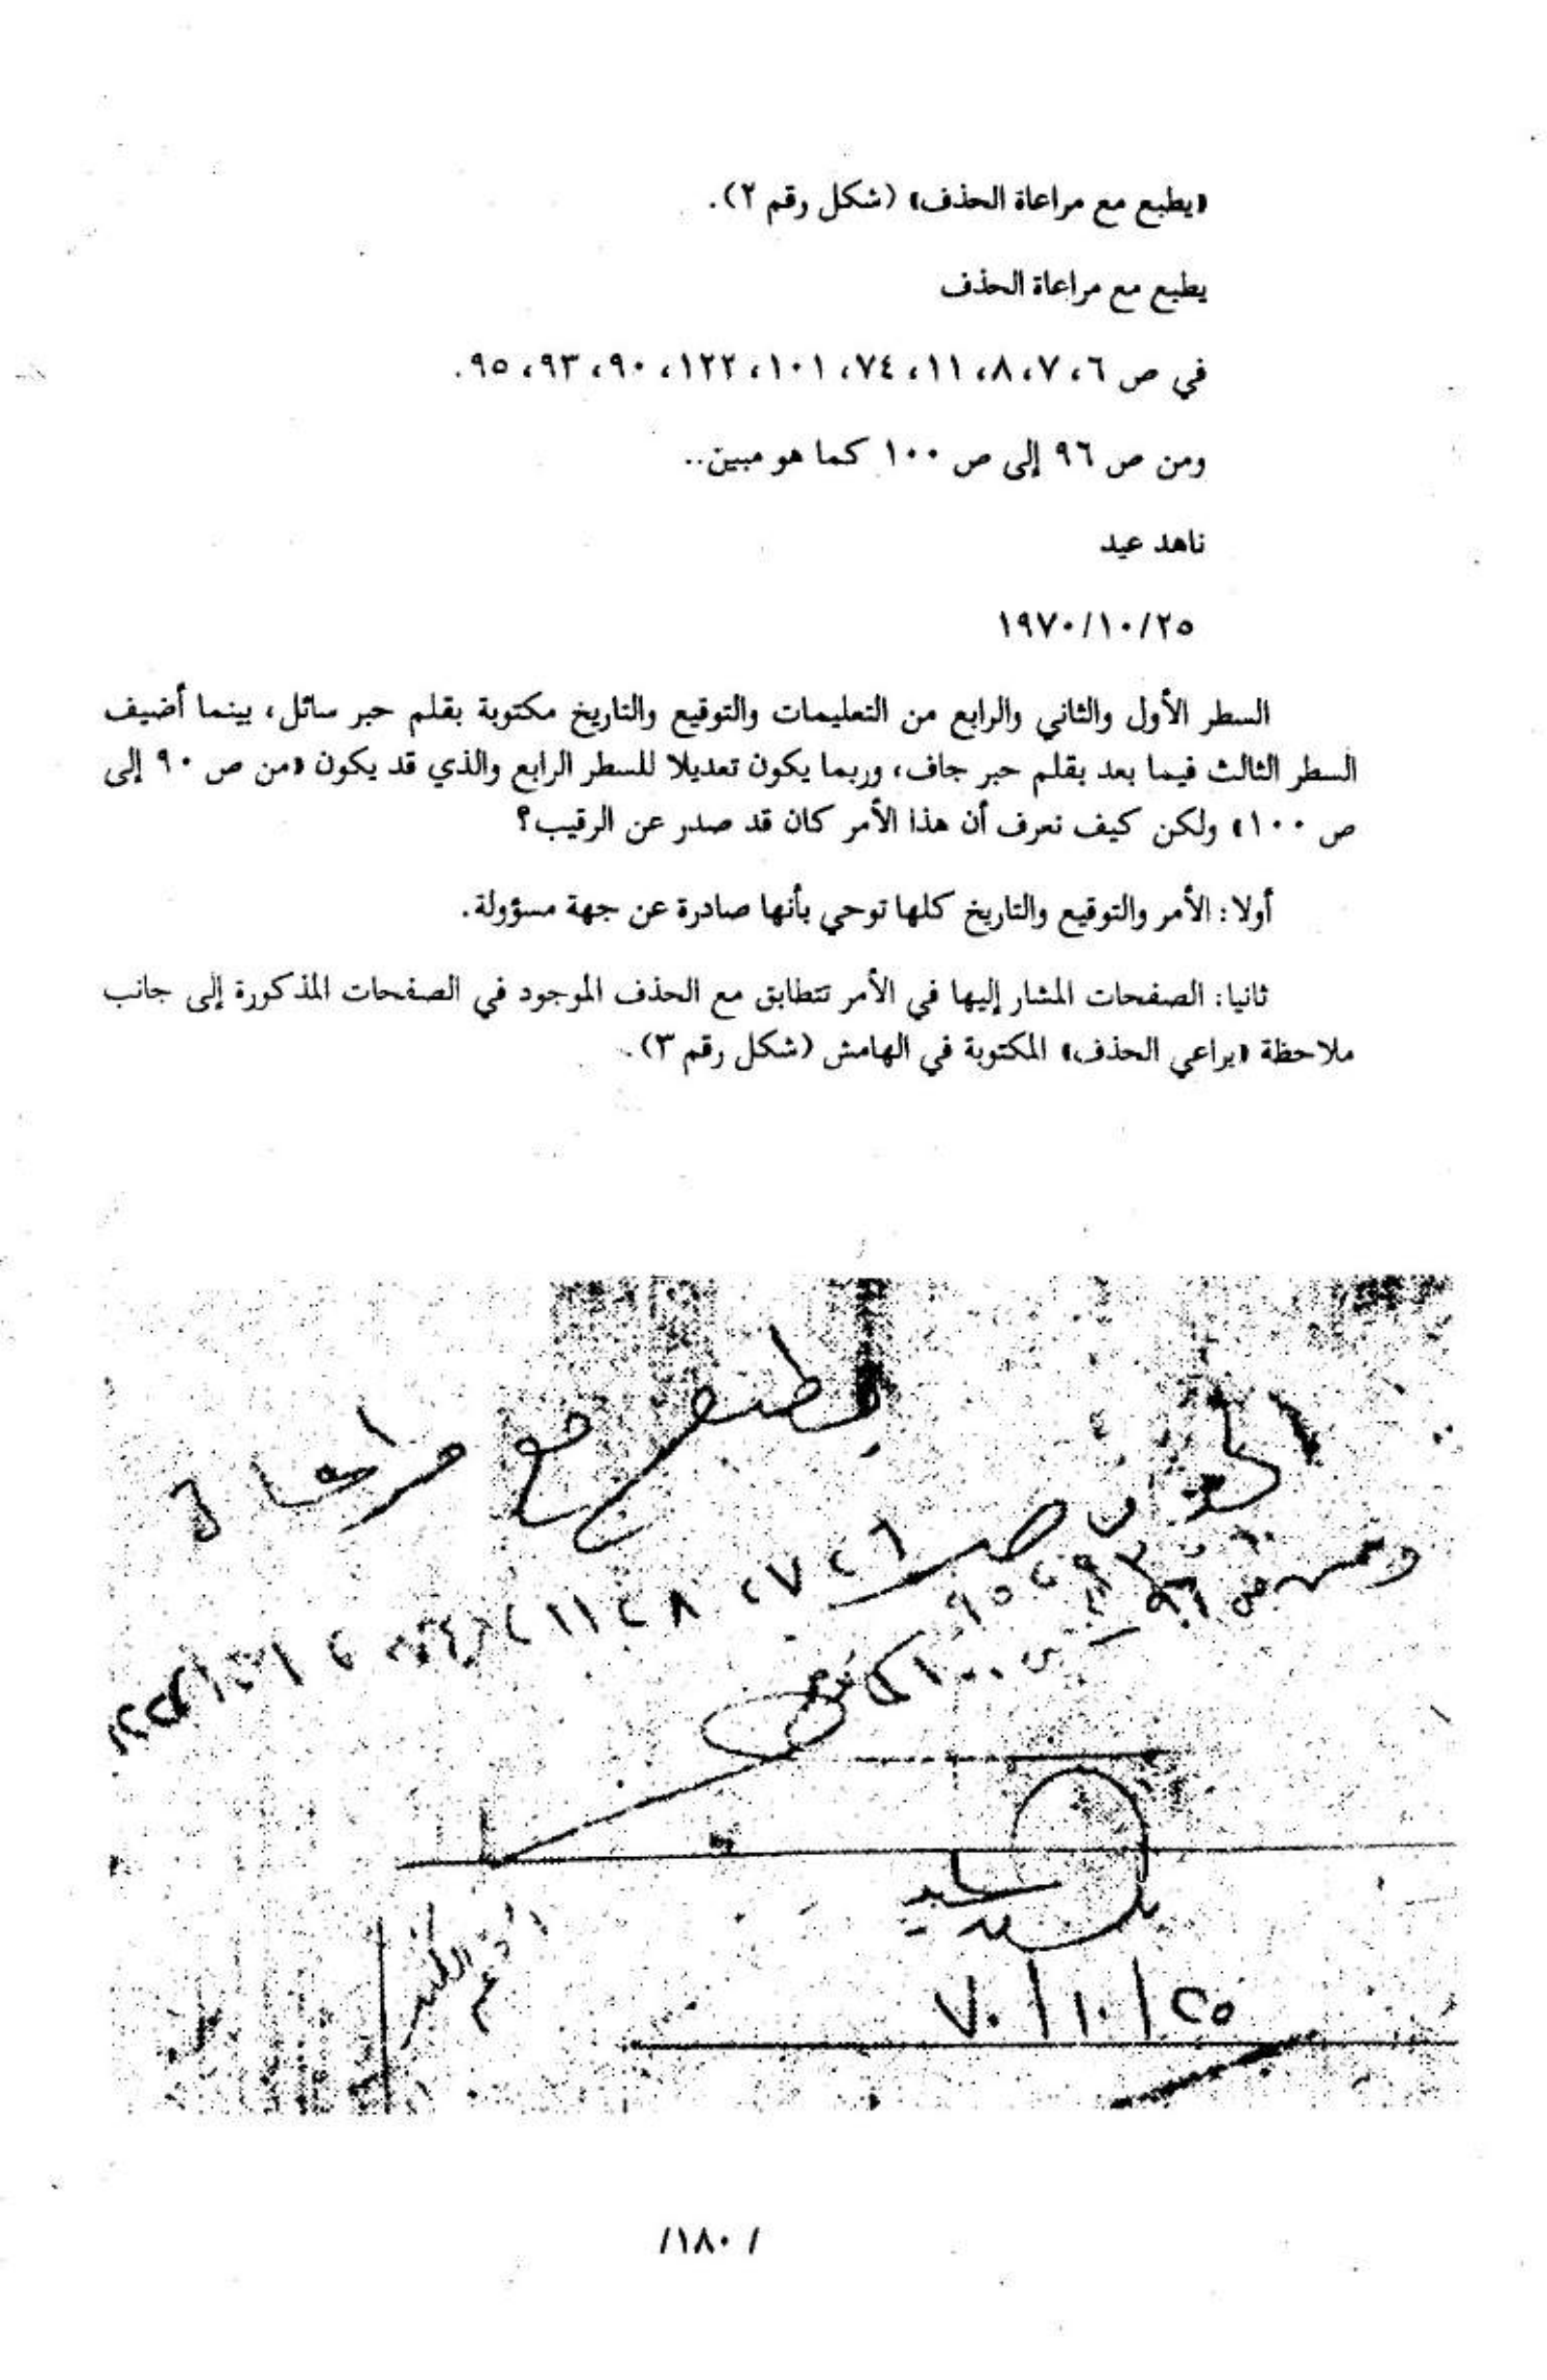 «يطبع مع مراعاة الحذف» (شكل رقم ٢).
يطبع مع مراعاة الحذف
في ص ٦، ٧، ٨، ١١، ٧٤، ١٠١، ١٢٢، ٩٠، ٩٣، ٩٥.
ومن ص ٩٦ إلى ص ١٠٠ كما هو مبين..
ناهد عيد
١٩٧٠/١٠/٢٥
السطر الأول والثاني والرابع من التعليمات والتوقيع والتاريخ مكتوبة بقلم حبر سائل، بينما أضيف
السطر الثالث فيما بعد بقلم حبر جاف، وربما يكون تعديلا للسطر الرابع والذي قد يكون «من ص ٩٠ إلى
ص ١٠٠» ولكن كيف نعرف أن هذا الأمر كان قد صدر عن الرقيب؟
أولا: الأمر والتوقيع والتاريخ كلها توحي بأنها صادرة عن جهة مسؤولة.
ثانيا: الصفحات المشار إليها في الأمر تتطابق مع الحذف الموجود في الصفحات المذكورة إلى جانب
ملاحظة «يراعي الحذف» المكتوبة في الهامش (شكل رقم ٣).
يطبع مع مراعاة
الحذف في ص ٦، ٧، ٨، ١١، ٧٤، ١٠١، ١٢٢
٩٠، ٩٣، ٩٥
ومن ص ٩٦ إلى ص ١٠٠ كما هو مبين
٢٥/١٠/٧٠
/١٨٠/